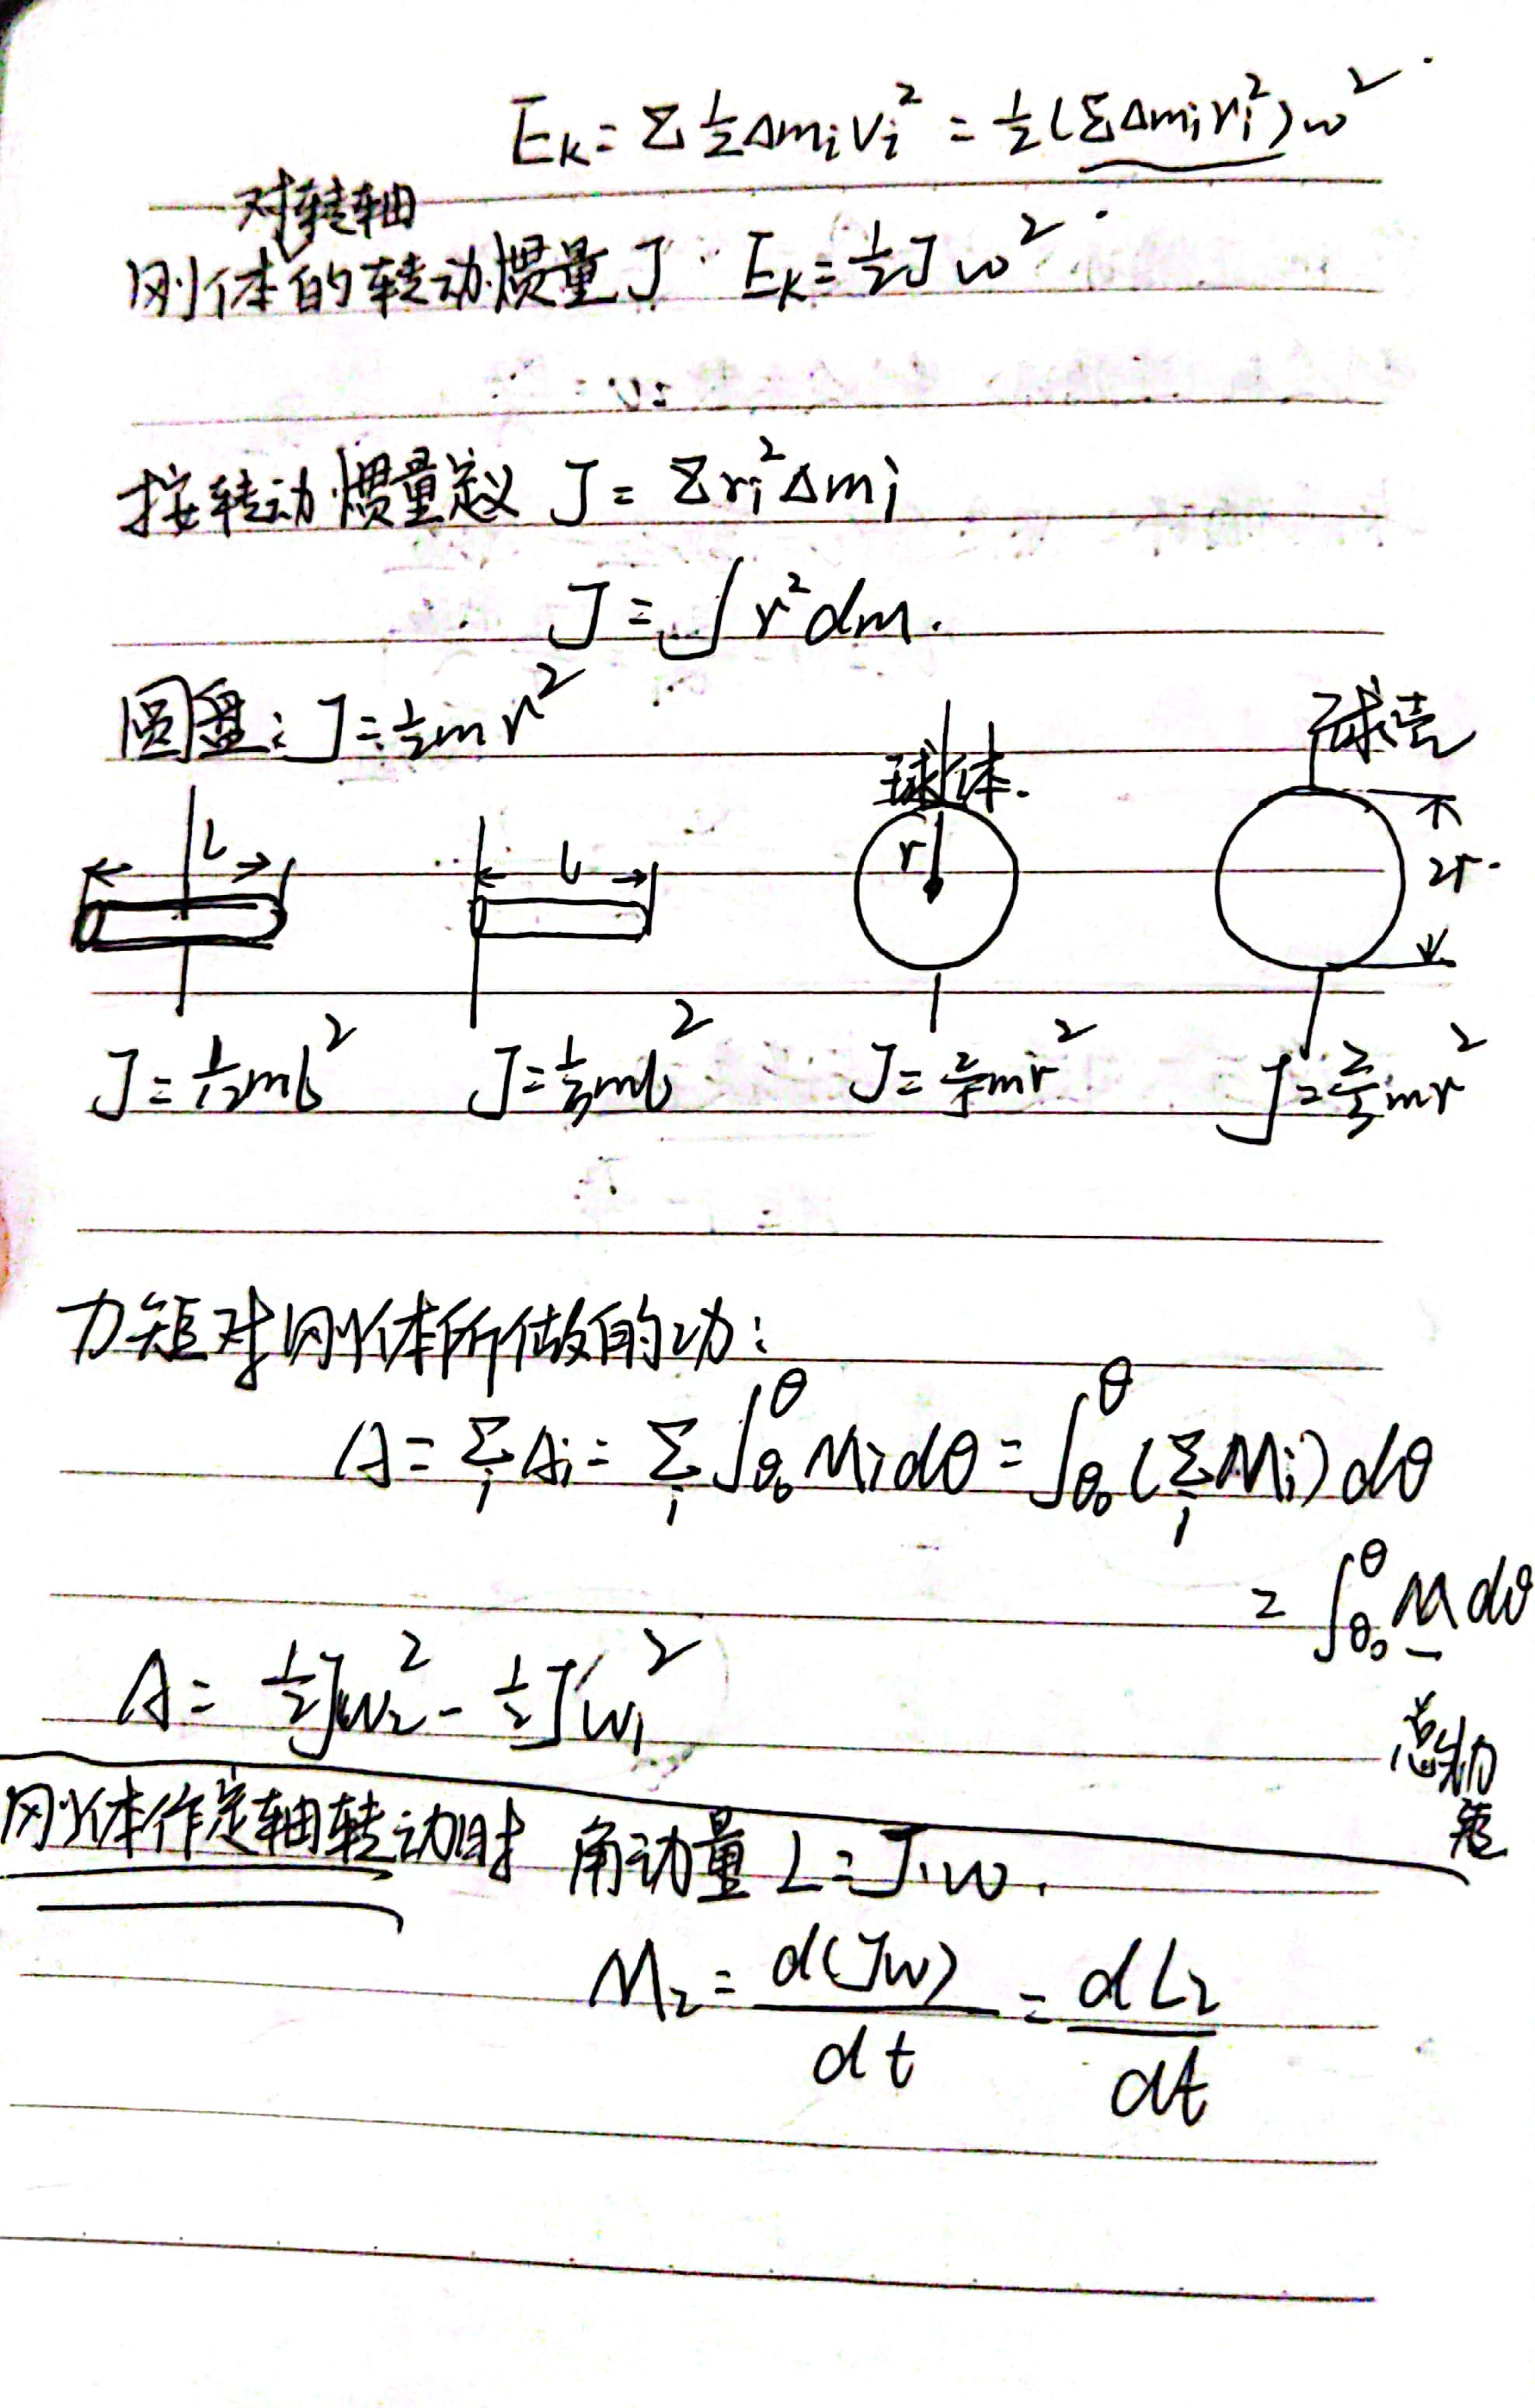 E_k = Σ ½ Δm_i v_i² = ½ (Σ Δm_i r_i²) ω²
对转轴
刚体的转动惯量 J  E_k = ½ J ω²
按转动惯量定义 J = Σ r_i² Δm_i
J = ∫ r² dm.
圆盘: J = ½ m r²
球体.  球壳
L  L  r  2r.
J = 1/12 m L²  J = 1/3 m L²  J = 2/5 m r²  J = 2/3 m r²
力矩对刚体所做的功:
A = Σ_i A_i = Σ_i ∫_θ₀^θ M_i dθ = ∫_θ₀^θ (Σ_i M_i) dθ
= ∫_θ₀^θ M dθ
A = ½ J ω₂² - ½ J ω₁²
总力
矩
刚体作定轴转动时 角动量 L = J·ω.
M_z = d(Jω)/dt = dL_z/dt